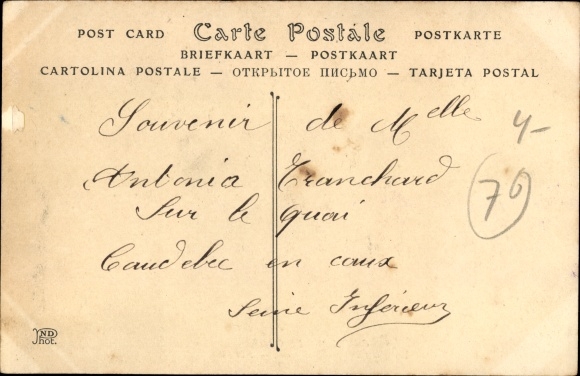 POST CARD Carte Postale POSTKARTE
BRIEFKAART — POSTKAART
CARTOLINA POSTALE — ОТКРЫТОЕ ПИСЬМО — TARJETA POSTAL
Souvenir de Melle
4-
Antonia Tranchard
76
Sur le quai
Caudebec en caux
Seine Inférieur
ND
Phot.